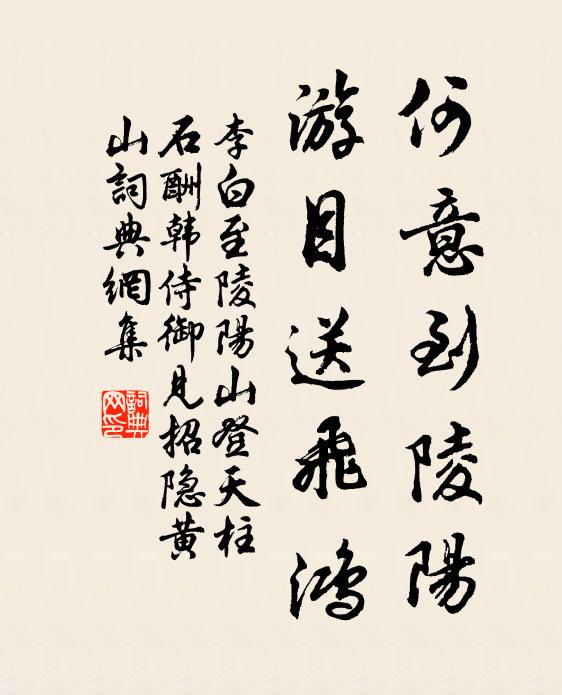 何意到陵陽
游目送飛鴻
李白至陵陽山登天柱
石酬韩侍御見招隐黄
山詞典網集
詞典
网印